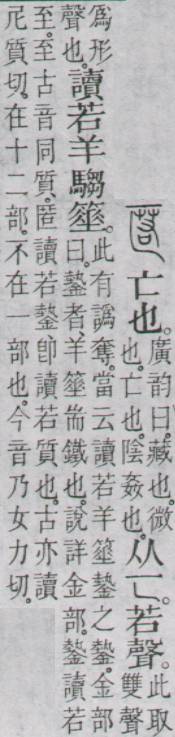 匿亡也。廣韵曰。藏也。微也。亡也。陰姦也。从匸。若聲。此取雙聲
爲形聲也。讀若羊騶箠。此有譌奪。當云讀若羊箠䥍之䥍。金部曰。䥍者。羊箠耑鐵也。說詳金部。䥍讀若
至。至古音同質。匿讀若䥍卽讀若質也。古亦讀尼質切。在十二部。不在一部也。今音乃女力切。